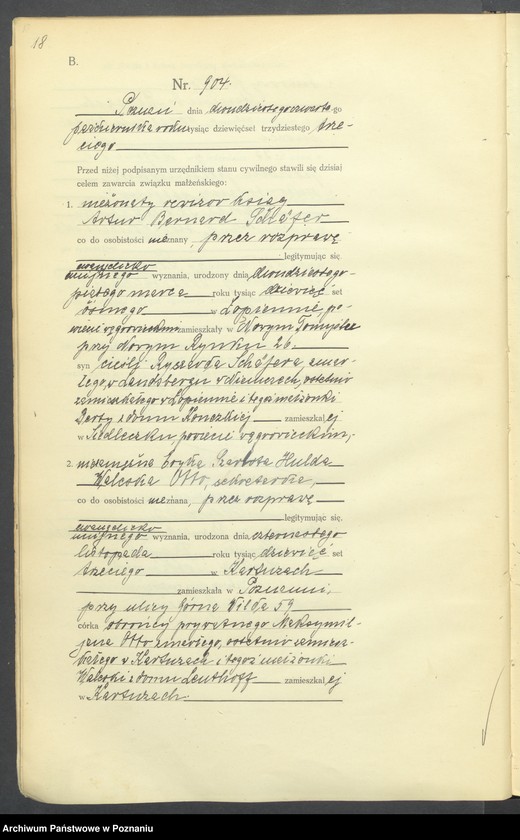 18
B.
Nr. 904.
Poznań dnia dwudziestego czwartego
października roku tysiąc dziewięćset trzydziestego trze-
ciego
Przed niżej podpisanym urzędnikiem stanu cywilnego stawili się dzisiaj
celem zawarcia związku małżeńskiego:
1. nieżonaty rewizor ksiąg
Artur Bernard Schäfer
co do osobistości nieznany, przez rozprawę
legitymując się
ewangelicko
unijnego wyznania, urodzony dnia dwudziestego
piątego marca roku tysiąc dziewięć set
ósmego w Łopiennie, po-
wiecie wągrowieckim zamieszkały w Nowym Tomyślu
przy Nowym Rynku 26.
syn cieśli Ryszarda Schäfera, zmar-
łego w Landsbergu w Niemczech, ostatnio
zamieszkałego w Łopiennie i tegoż małżonki
Berty z domu zamieszkałej
w Siedleczku, powiecie wągrowieckim,-
2. niezamężna Eryka Hulda
Waleska Otto, sekretarka,
co do osobistości nieznana, przez rozprawę
legitymując się,
ewangelicko
unijnego wyznania, urodzona dnia czternastego
listopada roku tysiąc dziewięć set
trzeciego w Kartuzach
zamieszkała w Poznaniu,
przy ulicy Górna Wilda 59
córka obrońcy prywatnego Maksymil-
jana Otto zmarłego, ostatnio zamiesz-
kałego w Kartuzach i tegoż małżonki
Waleski z domu Leuthoff zamieszkałej
w Kartuzach.
Archiwum Państwowe w Poznaniu